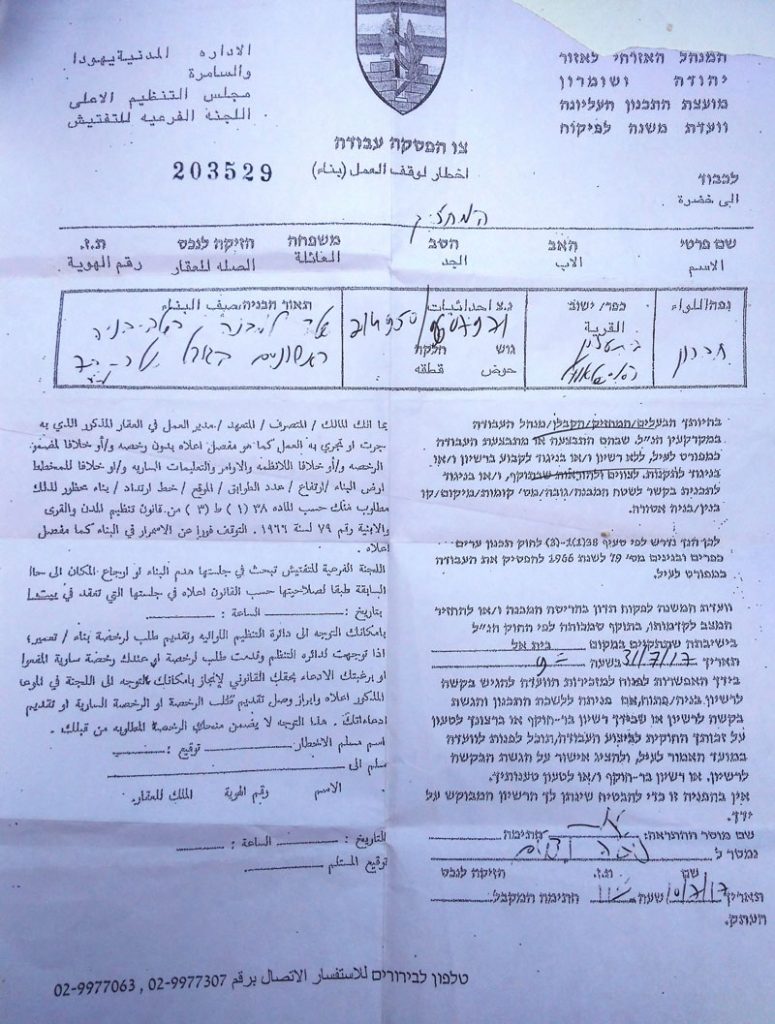 המנהל האזרחי לאזור
יהודה ושומרון
מועצת התכנון העליונה
וועדת משנה לפיקוח
الاداره المدنية يهودا
والسامرة
مجلس التنظيم الاعلى
اللجنة الفرعيه للتفتيش
צו הפסקה עבודה
اخطار لوقف العمل (بناء)
203529
לכבוד
الى حضرة
המחזיק
שם פרטי האב הסב משפחה הזיקה לנכס ת.ז.
الاسم الاب الجد العائلة الصله للعقار رقم الهوية
נפה/اللواء
חברון
כפר/ ישוב
القرية
נ.צ احداثيات
גוש חלקה
حوض قطعه
תאור הבניה/صيف البناء
בהיותך הבעלים/המחזיק/הקבלן/מנהל העבודה
במקרקעין הנ"ל. שבהם התבצעה או מתבצעת העבודה
כמפורט לעיל, ללא רשיון ו/או בניגוד לקבוע ברשיון ו/או
בניגוד לתקנות. לצווים ולהוראות שבתוקף, ו/או בניגוד
לתכנית בקשר לשטח המבנה/גובה/מס' קומות/מיקום/קו
בנין/בניה אסורה.
לכן הנך נדרש לפי סעיף 38(1)-3 לחוק תכנון ערים
כפרים ובנינים מס' 79 לשנת 1966 להפסיק את העבודה
כמפורט לעיל.
וועדת המשנה לפקוח תדון בהריסת המבנה ו/או להחזיר
המצב לקדמותו, בתוקף סמכותה לפי החוק הנ"ל
בישיבתה שתתקיים במקום בית אל
תאריך 31/7/17 בשעה 9
בידך האפשרות לפנות למזכירות הוועדה להגיש בקשה
לרשיון בניה/פתוח, אם פניתה ללשכת התכנון והגשת
בקשה לרשיון או שבידך רשיון בר-תוקף או ברצונך לטעון
על זכותך החוקית לביצוע העבודה, תוכל לפנות לוועדה
במועד האמור לעיל, ולהציג אישור על הגשת הבקשה
לרשיון. או רשיון בר-תוקף ו/או לטעון טענותיך.
אין בהפניה זו כדי להבטיח שינתן לך הרשיון המבוקש על
ידך.
שם מוסר ההתראה: חתימה
נמסר ל
שם ת.ז. הזיקה לנכס
תאריך 10/7/17 שעה 11 חתימת המקבל
העתק.
بما انك المالك / المتصرف / المتعهد / مدير العمل في العقار المذكور الذي به
جرت او تجري به العمل كما هو مفصل اعلاه بدون رخصه و/أو خلافا لمضمون
الرخصه و/أو خلافا للانظمه والاوامر والتعليمات الساريه و/او خلافا للمخطط
ارض البناء / ارتفاع / عدد الطوابق / الموقع / خط ارتداد / بناء محظور لذلك
مطلوب منك حسب الماده ٣٨ (١) ط (٣) من قانون تنظيم المدن والقرى
والابنية رقم ٧٩ لسنة ١٩٦٦ . التوقف فورا عن الاستمرار في البناء كما مفصل
اعلاه .
اللجنة الفرعية للتفتيش تبحث في جلستها هدم البناء او ارجاع المكان الى حالته
السابقة طبقا لصلاحيتها حسب القانون اعلاه في جلستها التي تعقد في
بتاريخ: الساعة :
بامكانك التوجه الى دائرة التنظيم وتقديم طلب لرخصة بناء / تعمير؛
اذا توجهت لدائره التنظيم وقدمت طلب لرخصة او عندك رخصة سارية المفعول
او برغبتك الادعاء بحقك القانوني لانجاز بامكانك التوجه الى اللجنة في الموعد
المذكور اعلاه وابراز وصل تقديم طلب الرخصة او الرخصة السارية او تقديم
ادعاءاتك . هذا التوجه لا يضمن منحك الرخصه المطلوبه من قبلك .
اسم مسلم الاخطار توقيع :
سلم الى
الاسم رقم الهوية الملك للعقار
التاريخ : الساعة :
توقيع المستلم
טלפון לבירורים للاستفسار الاتصال برقم 02-9977307 , 02-9977063